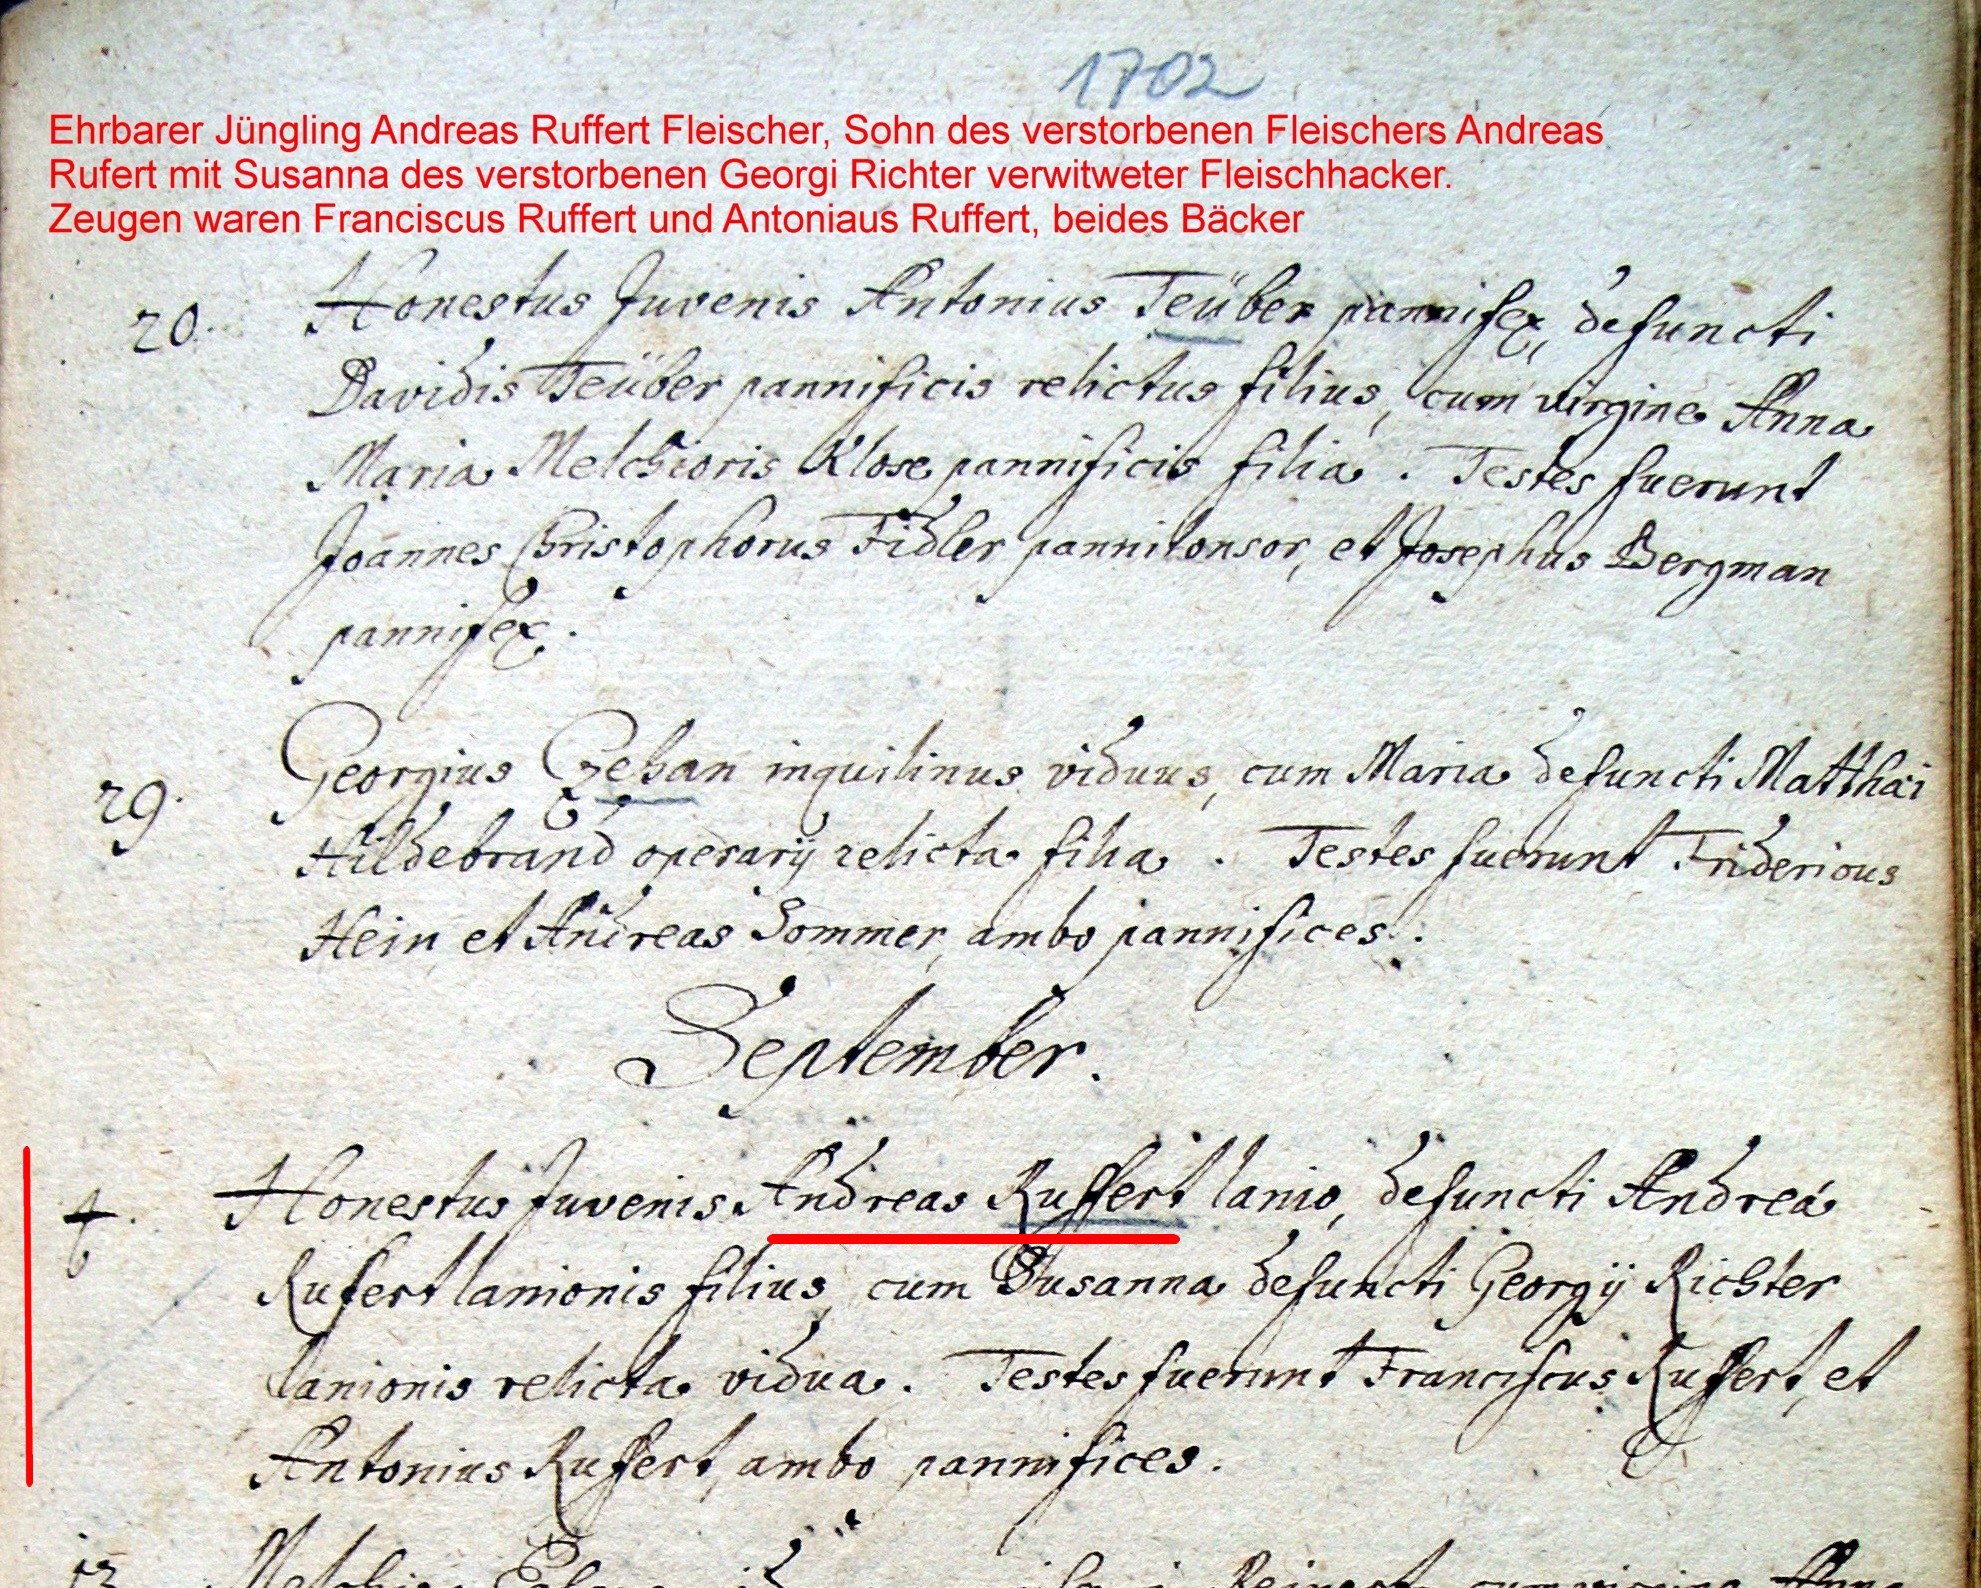 1702
Ehrbarer Jüngling Andreas Ruffert Fleischer, Sohn des verstorbenen Fleischers Andreas
Rufert mit Susanna des verstorbenen Georgi Richter verwitweter Fleischhacker.
Zeugen waren Franciscus Ruffert und Antoniaus Ruffert, beides Bäcker
20. Honestus Juvenis Antonius Teüber pannifex, defuncti
Davidis Teüber pannificis relictus filius, cum virgine Anna
Maria Melchioris Klose pannificis filia. Testes fuerunt
Joannes Christophorus Fidler pannitonsor, et Josephus Bergman
pannifex.
29. Georgius Czehan inquilinus viduus, cum Maria defuncti Matthæi
Hildebrand operarij relicta filia. Testes fuerunt Fridericus
Hein et Andreas Sommer, ambo pannifices.
September.
4. Honestus Juvenis Andreas Ruffert lanio, defuncti Andreæ
Rufert lanionis filius, cum Susanna defuncti Georgij Richter
lanionis relicta vidua. Testes fuerunt Franciscus Ruffert, et
Antonius Ruffert, ambo pannifices.
13. Melchior cum virgine Anna